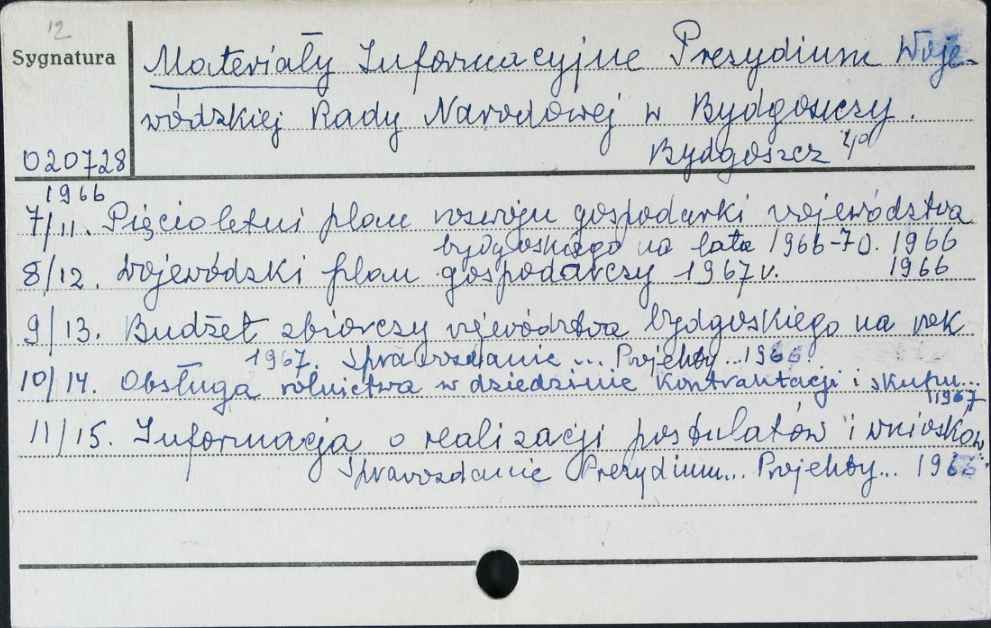 12
Sygnatura
Materiały Informacyjne Prezydium Woje-
wódzkiej Rady Narodowej w Bydgoszczy.
020728
Bydgoszcz 4°
1966
7/11. Pięcioletni plan rozwoju gospodarki województwa
bydgoskiego na lata 1966-70. 1966
8/12. Wojewódzki plan gospodarczy 1967 r. 1966
9/13. Budżet zbiorczy województwa bydgoskiego na rok
1967. Sprawozdanie ... Projekty ... 1966
10/14. Obsługa rolnictwa w dziedzinie kontraktacji i skupu...
1967
11/15. Informacja o realizacji postulatów i wniosków
Sprawozdanie Prezydium... Projekty... 1966